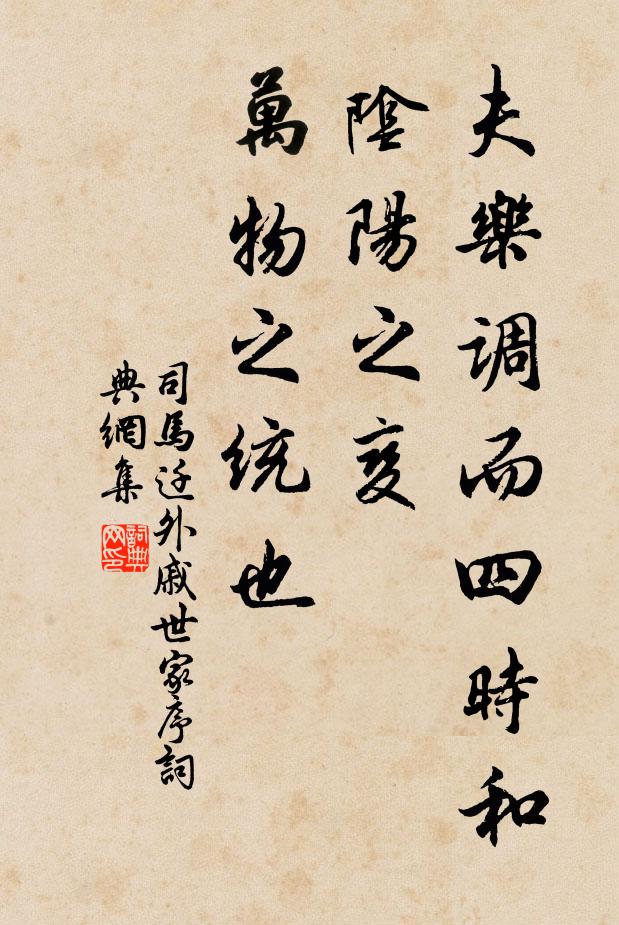 夫樂調而四時和
陰陽之变
萬物之統也
司馬迁外戚世家序詞
典網集
詞典
网印